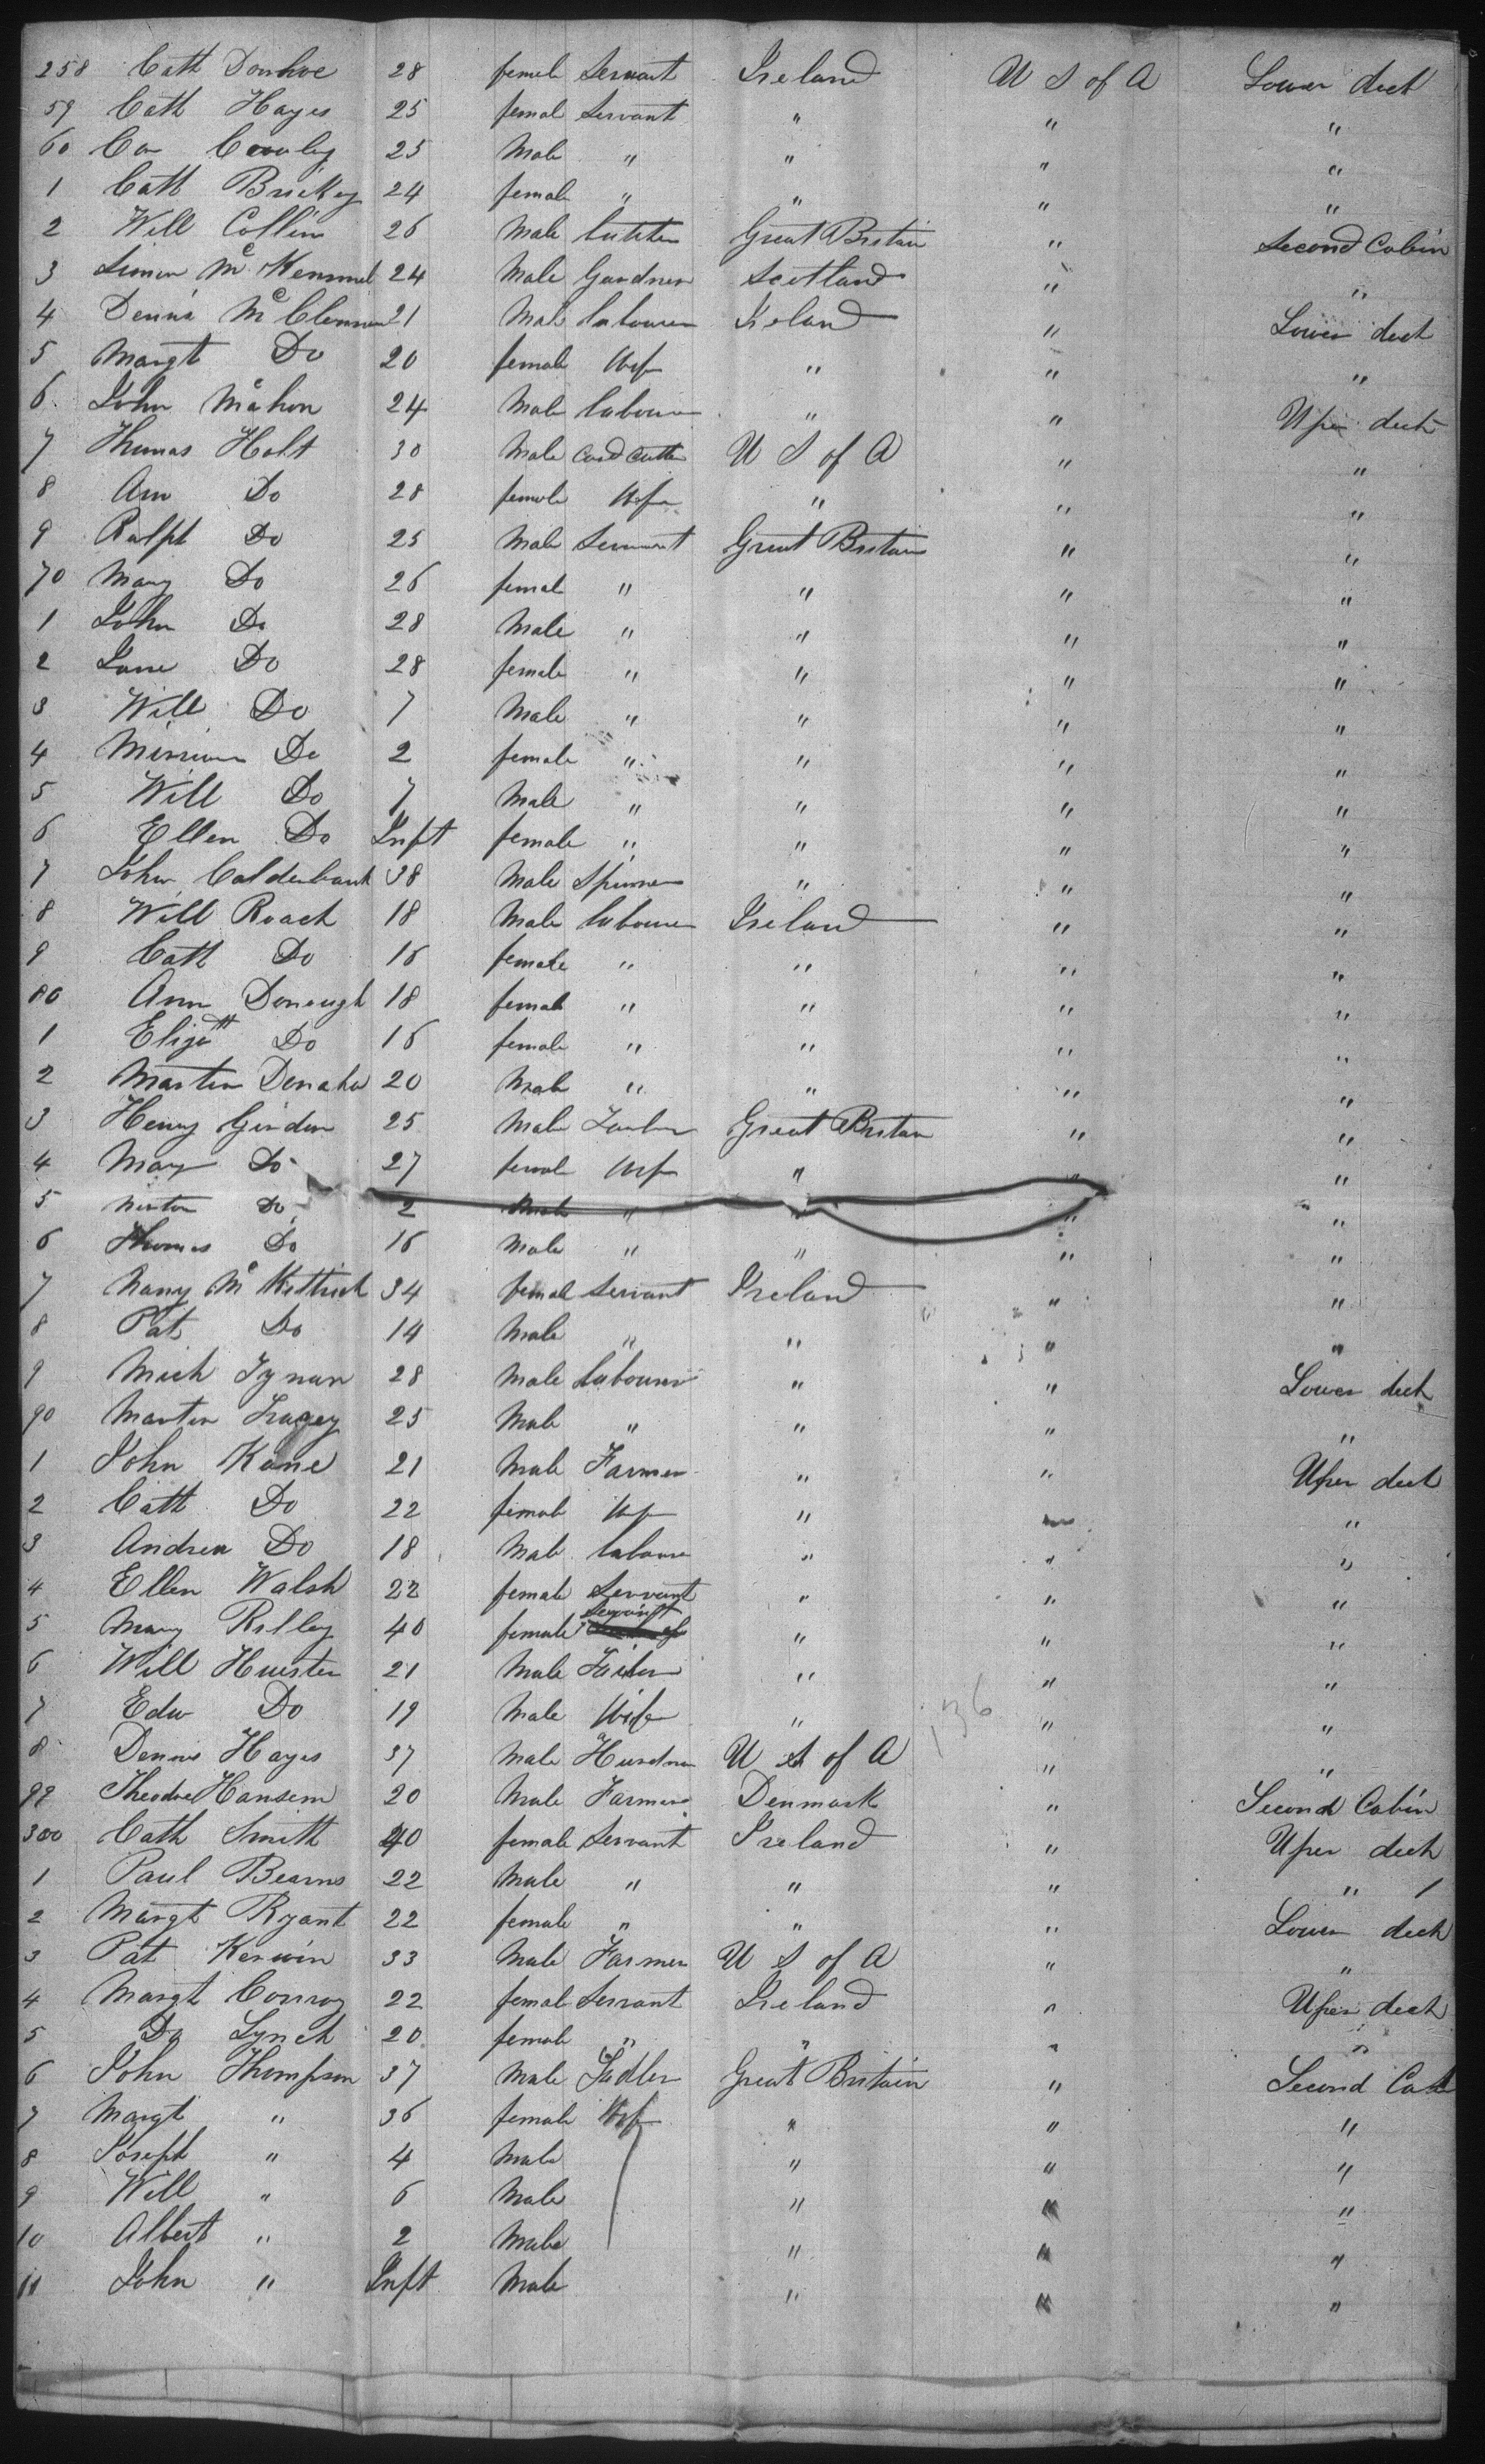 258 Cath Donhoe 28 female Servant Ireland U S of A Lower deck
59 Cath Hayes 25 femal Servant " " "
60 Con 25 Male " " " "
1 Cath Brickey 24 female " " " "
2 Will Collin 26 Male Great Britain " Second Cabin
3 Simon Mc 24 Male Gardner Scotland " "
4 Dennis Mc 21 Male labourer Ireland " Lower deck
5 Margt Do 20 female Wife " " "
6 John Mahon 24 Male labourer " " Uper deck
7 Thomas Holt 30 Male U S of A " "
8 Ann Do 28 female Wife " " "
9 Ralph Do 25 Male Servant Great Britain " "
70 Mary Do 26 female " " " "
1 John Do 28 Male " " " "
2 Jane Do 28 female " " " "
3 Will Do 7 Male " " " "
4 Mirriam Do 2 female " " " "
5 Will Do 7 Male " " " "
6 Ellen Do Inft female " " " "
7 John Calderbank 38 Male Spinner " " "
8 Will Roach 18 Male labourer Ireland " "
9 Cath Do 16 female " " " "
80 Ann Donough 18 female " " " "
1 Elizath Do 16 female " " " "
2 Martin Donahu 20 Male " " " "
3 Henry 25 Male Great Britain " "
4 Mary Do 27 female Wife " " "
5 Do 2 Male " " " "
6 Thomas Do 16 Male " " " "
7 Mc Kettrick 34 female Servant Ireland " "
8 Pat Do 14 Male " " " "
9 Mich Tynan 28 Male labourer " " Lower deck
90 Martin 25 Male " " " "
1 John Kane 21 Male Farmer " " Uper deck
2 Cath Do 22 female Wife " " "
3 Andrew Do 18 Male labourer " " "
4 Ellen Walsh 22 female Servant " " "
5 Mary Rilley 40 female Servant " " "
6 Will Huester 21 Male " " "
7 Edw Do 19 Male Wife " " "
8 Dennis Hayes 37 Male U S of A " "
99 Theodre Hansem 20 Male Farmer Denmark " Second Cabin
300 Cath Smith 40 female Servant Ireland " Uper deck
1 Paul Bearns 22 Male " " " "
2 Margt Ryant 22 female " " " Lower deck
3 Pat Kerwin 33 Male Farmer U S of A " "
4 Margt Conroy 22 female Servant Ireland " Uper deck
5 Do Lynch 20 female " " " "
6 John Thompson 37 Male Sadler Great Britain " Second Cab
7 Margt " 36 female Wife " " "
8 Joseph " 4 Male " " "
9 Will " 6 Male " " "
10 Albert " 2 Male " " "
11 John " Inft Male " " "
136